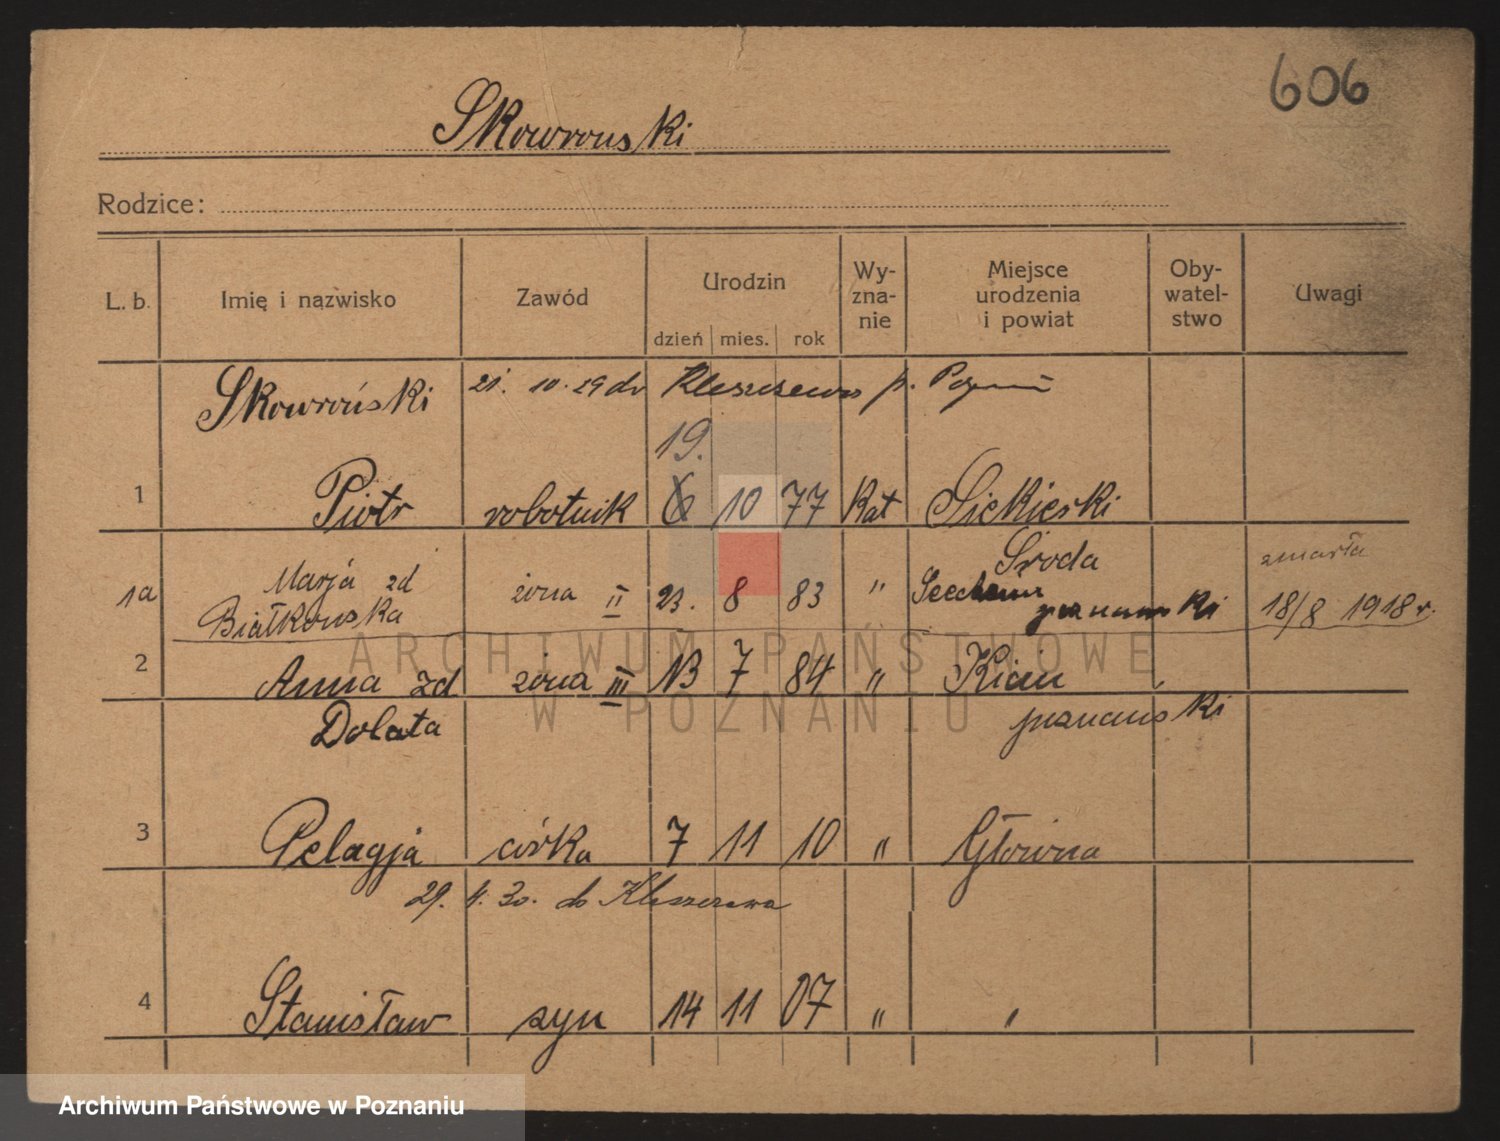 606
Skowronski
Rodzice:
L. b.
Imię i nazwisko
Zawód
Urodzin
dzień mies. rok
Wy-
zna-
nie
Miejsce
urodzenia
i powiat
Oby-
watel-
stwo
Uwagi
Skowroński 21. 10. 29 do Kleszczewo p.
19.
1 Piotr robotnik 6 10 77 Kat Siekierki
Środa
1a Marja zd żona II 23. 8 83 " zmarła
Białkowska poznanski 18/8 1918 r.
2 Anna zd żona III 13 7 84 "
Dolata poznanski
3 Pelagja córka 7 11 10 " Główna
29. 4. 30. do Kleszczewa
4 Stanisław syn 14 11 07 " "
ARCHIWUM PAŃSTWOWE
W POZNANIU
Archiwum Państwowe w Poznaniu